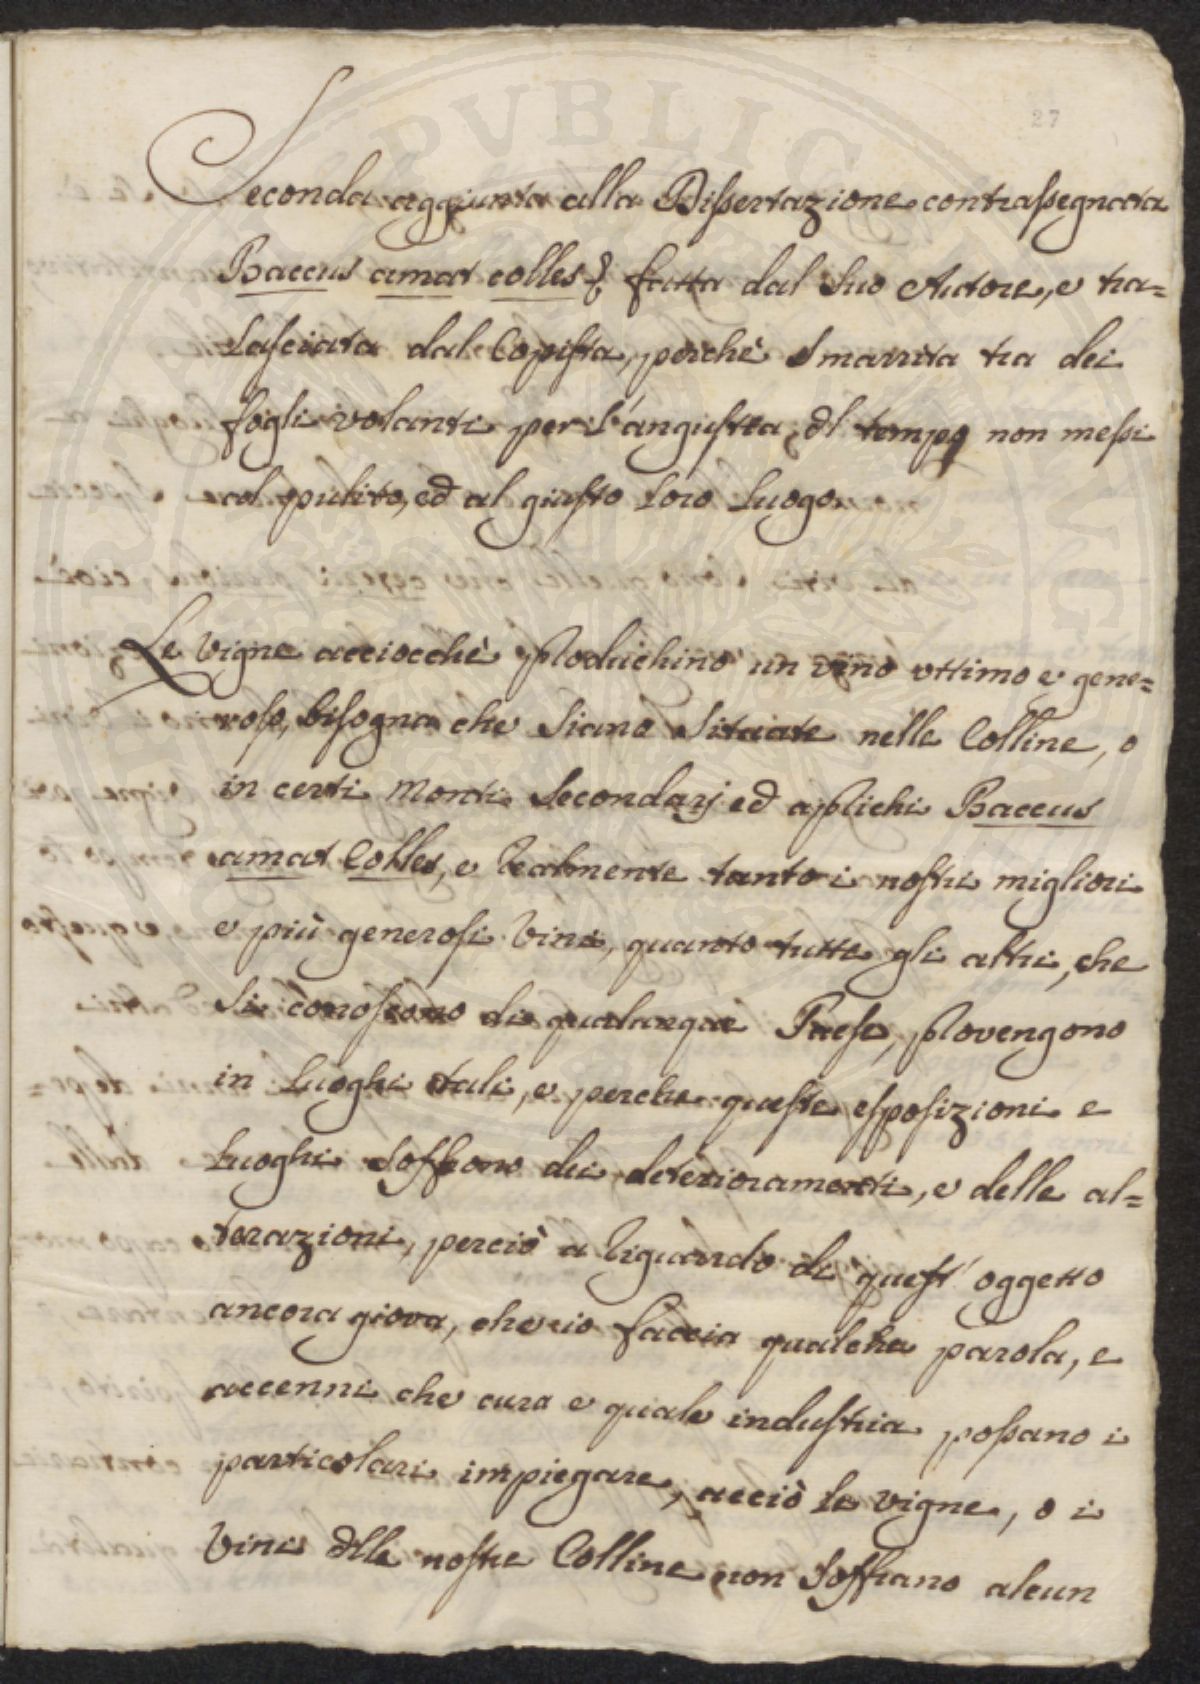 27
Seconda aggiunta alla Dissertazione contrassegnata
Baccus amat colles &. fatta dal suo Autore, e tra=
lasciata dal Copista, perchè smarrita tra dei
fogli volanti per l'angustia dl tempo non messi
al pulito, ed al giusto loro luogo.
Le vigne acciocchè produichino un vino ottimo e gene=
roso, bisogna che siano situate nelle Colline, o
in certi Monti secondarj ed aprichi Baccus
amat Colles, e realmente tanto i nostri migliori
e più generosi vini, quanto tutti gli altri, che
si conoscono di qualunque Paese, provengono
in luoghi tali, e perche queste esposizioni e
luoghi soffrono dei deterioramenti, e delle al=
terazioni, perciò a riguardo di quest' oggetto
ancora giova, che io faccia qualche parola, e
accenni che cura e quale industria possano i
particolari impiegare, acciò le vigne, o i
vini dlle nostre Colline non soffrano alcun